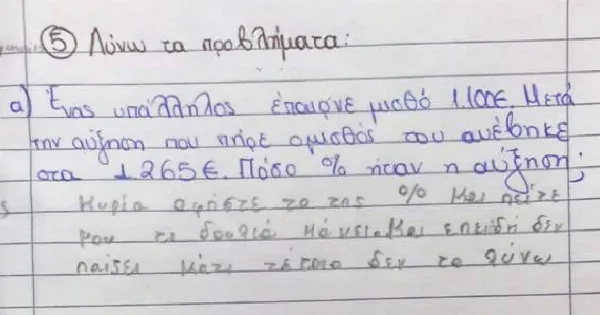 ⑤ Λύνω τα προβλήματα:
α) Ένας υπάλληλος έπαιρνε μισθό 1.100€. Μετά
την αύξηση που πήρε ο μισθός του ανέβηκε
στα 1265€. Πόσο % ήταν η αύξηση;
Κυρία αφήστε το της % και πείτε
μου τι δουλειά κάνει. Και επειδή δεν
παίζει κάτι τέτοιο δεν το λύνω